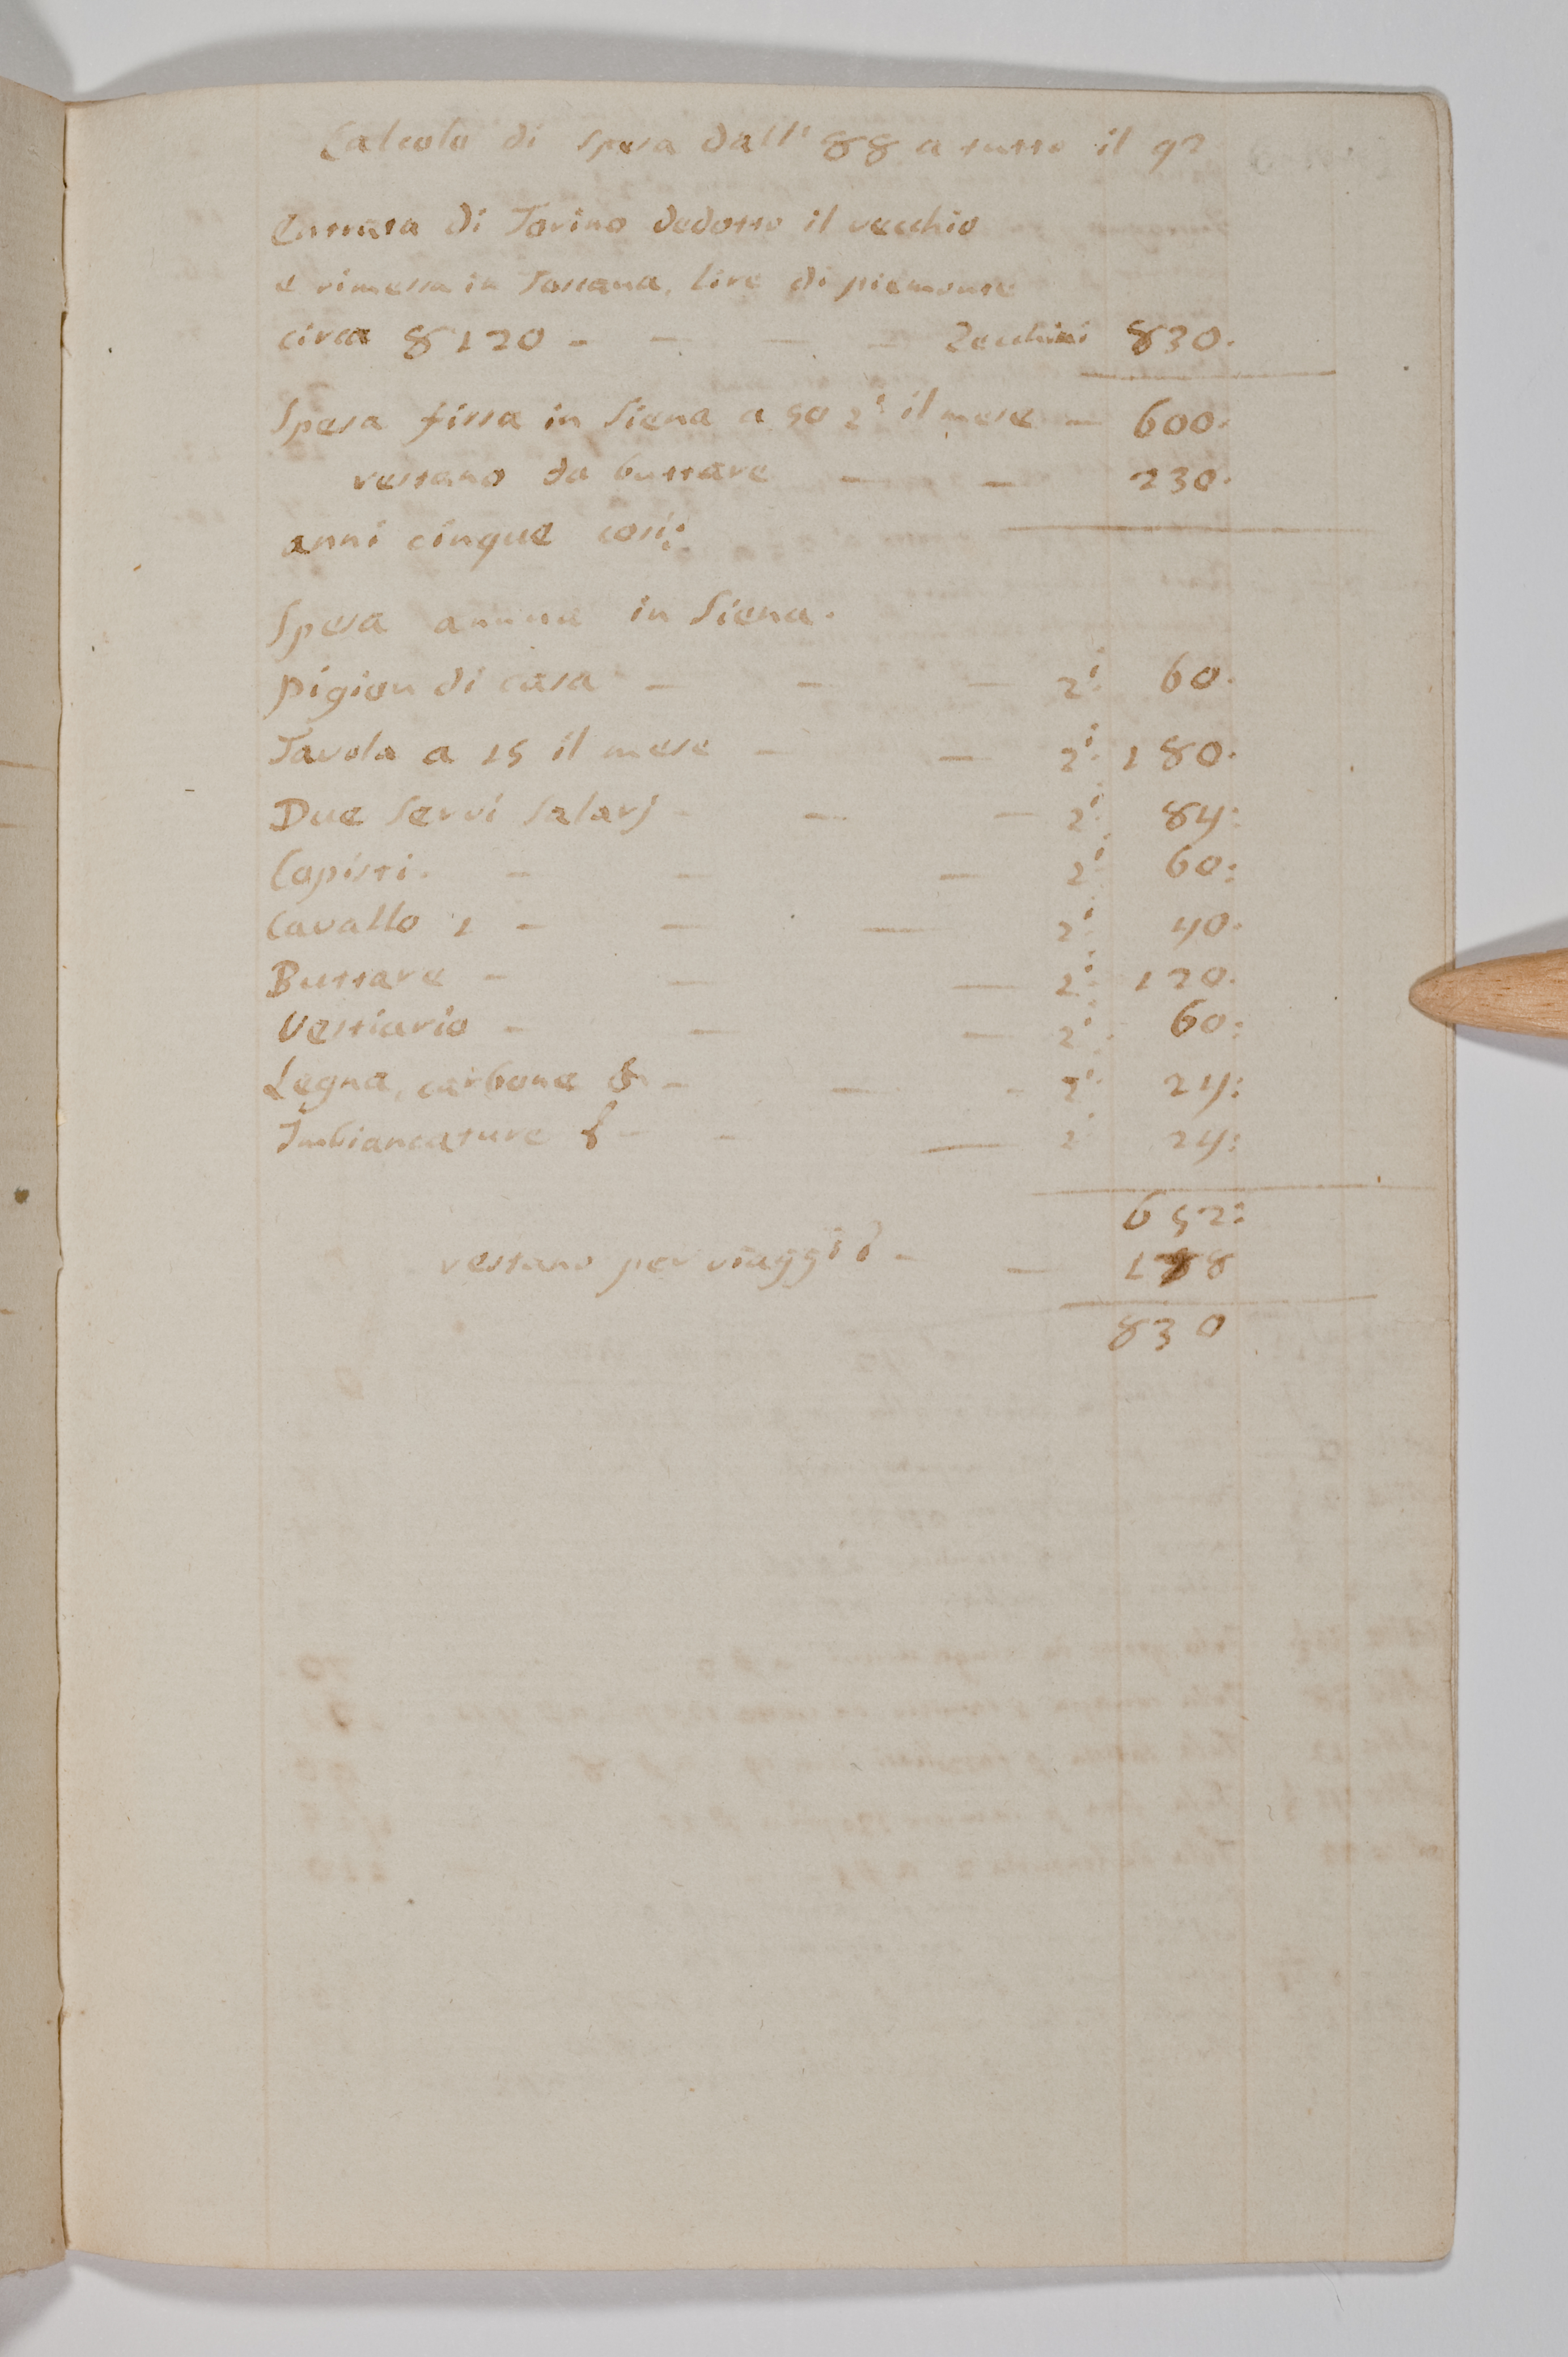 Calcolo di spesa dall' 88 a tutto il 92
Entrata di Torino dedotto il vecchio
e rimessa in Toscana, lire di piemonte
circa 8120 - - - - Zecchini 830.
Spesa fissa in Siena a 50 Z.i il mese - 600.
restano da buttare - - 230.
anni cinque così:
Spesa annua in Siena.
pigion di casa - - - Z.i 60.
Tavola a 15 il mese - - Z.i 180.
Due Servi Salarj - - - Z.i 84:
Copisti. - - - Z.i 60:
Cavallo 1 - - - Z.i 40.
Buttare - - - Z.i 120.
Vestiario - - - Z.i 60:
Legna, carbone & - - - Z.i 24:
Imbiancature & - - - Z.i 24:
652:
restano per viaggi - - 178
830